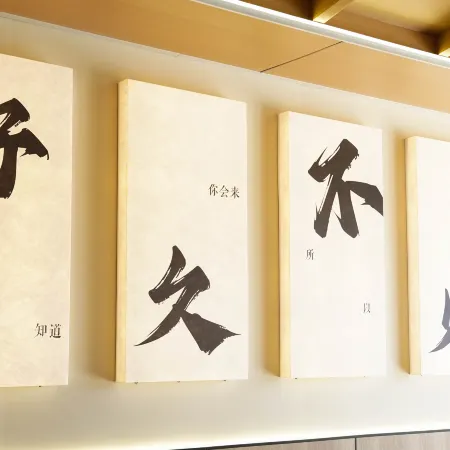 知道
你会来
久
不
所
以